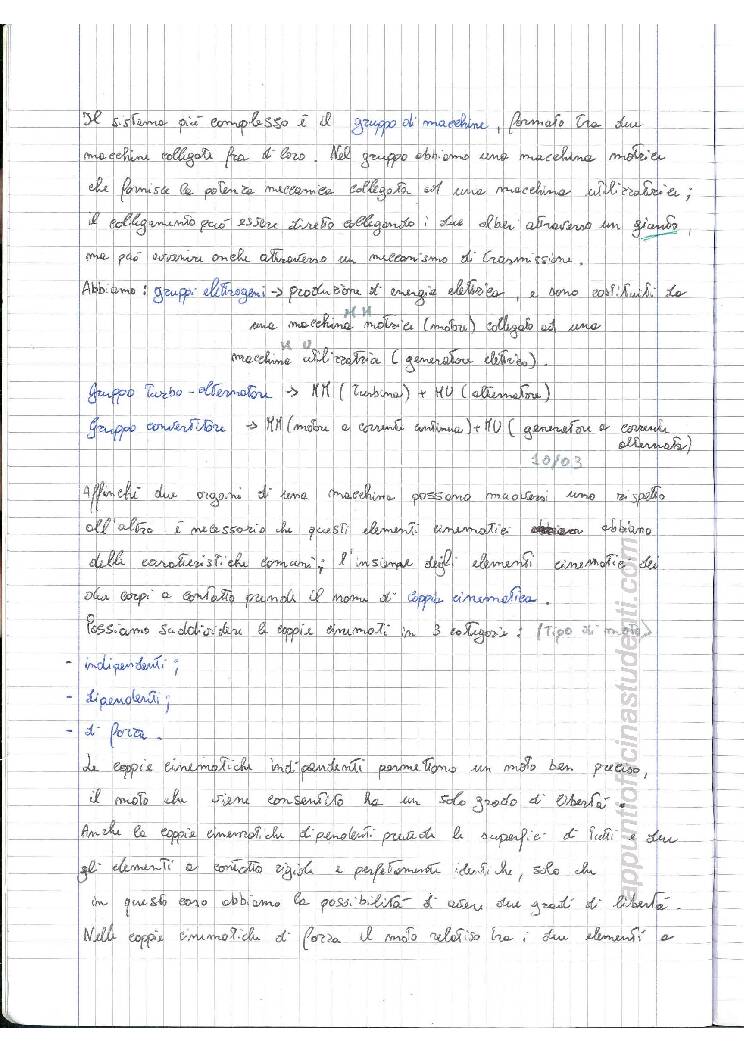 Il sistema più complesso è il gruppo di macchine, formato tra due
macchine collegate fra di loro. Nel gruppo abbiamo una macchina motrice
che fornisce la potenza meccanica collegata ad una macchina utilizzatrice;
il collegamento può essere diretto collegando i due alberi attraverso un giunto,
ma può avvenire anche attraverso un meccanismo di trasmissione.
Abbiamo: gruppi elettrogeni → produzione di energia elettrica, e sono costituiti da
MM
una macchina motrice (motore) collegato ad una
MU
macchina utilizzatrice (generatore elettrico).
Gruppo turbo-alternatore → MM (turbina) + MU (alternatore)
Gruppo convertitore → MM (motore a corrente continua) + MU (generatore a corrente
alternata)
10/03
Affinché due organi di una macchina possano muoversi uno rispetto
all'altro è necessario che questi elementi cinematici abbiano
delle caratteristiche comuni; l'insieme degli elementi cinematici dei
due corpi a contatto prende il nome di coppia cinematica.
Possiamo suddividere le coppie cinemati in 3 categorie: (Tipo di moto)
- indipendenti;
- dipendenti;
- di forza.
Le coppie cinematiche indipendenti permettono un moto ben preciso,
il moto che viene consentito ha un solo grado di libertà.
Anche le coppie cinematiche dipendenti prevede le superfici di tutti e due
gli elementi a contatto rigide e perfettamente identiche, solo che
in questo caso abbiamo la possibilità di avere due gradi di libertà.
Nelle coppie cinematiche di forza il moto relativo tra i due elementi a
appuntiofficinastudenti.com